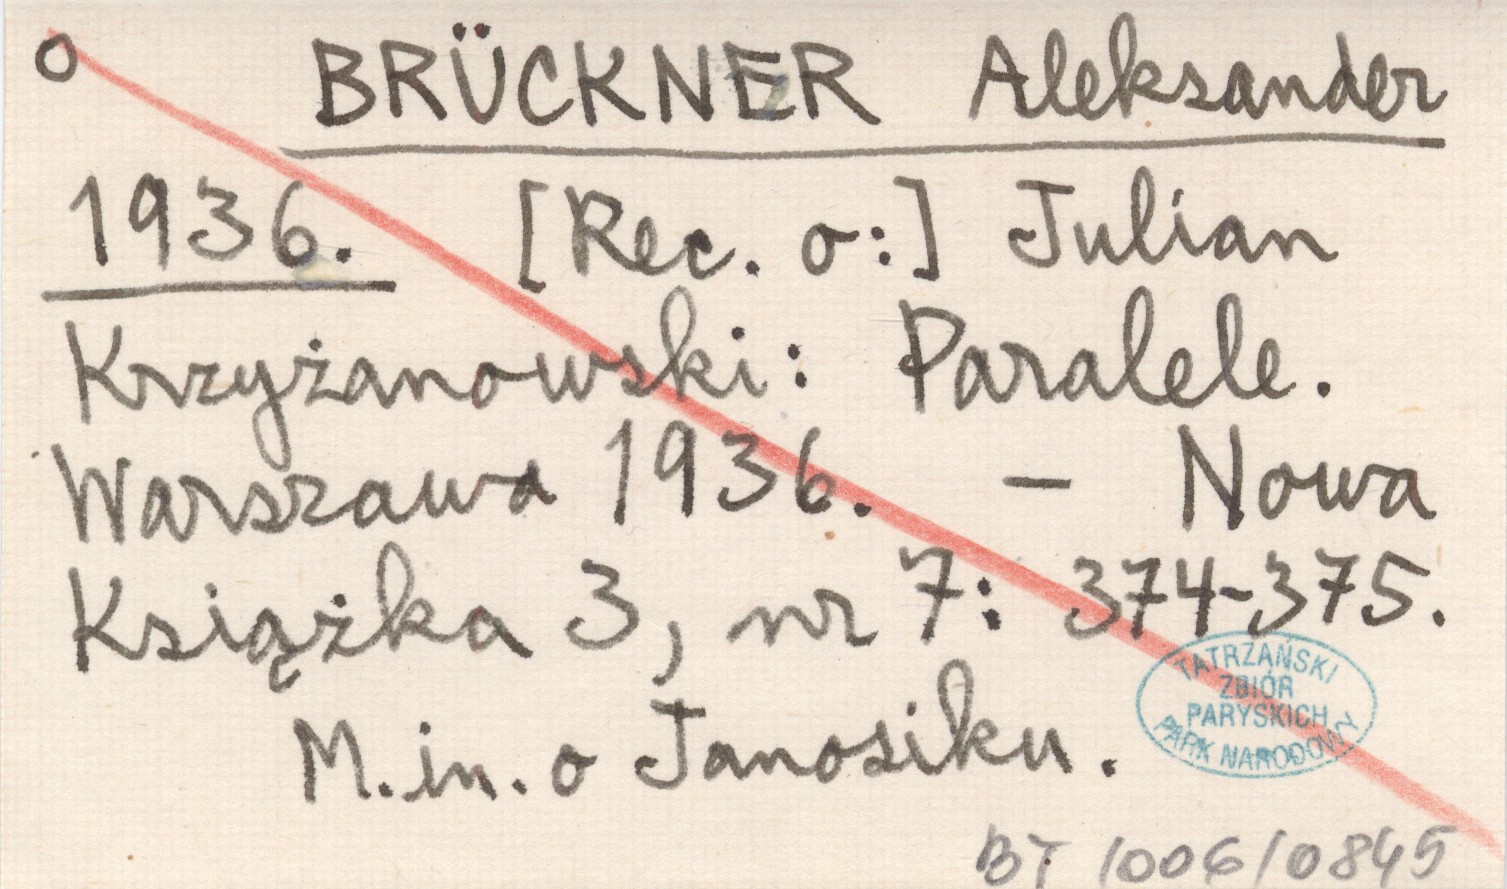 o BRÜCKNER Aleksander
1936. [Rec. o:] Julian
Krzyżanowski: Paralele.
Warszawa 1936. – Nowa
Książka 3, nr 7: 374-375.
M.in. o Janosiku.
TATRZAŃSKI
ZBIÓR
PARYSKICH
PARK NARODOWY
BT 1006/0845